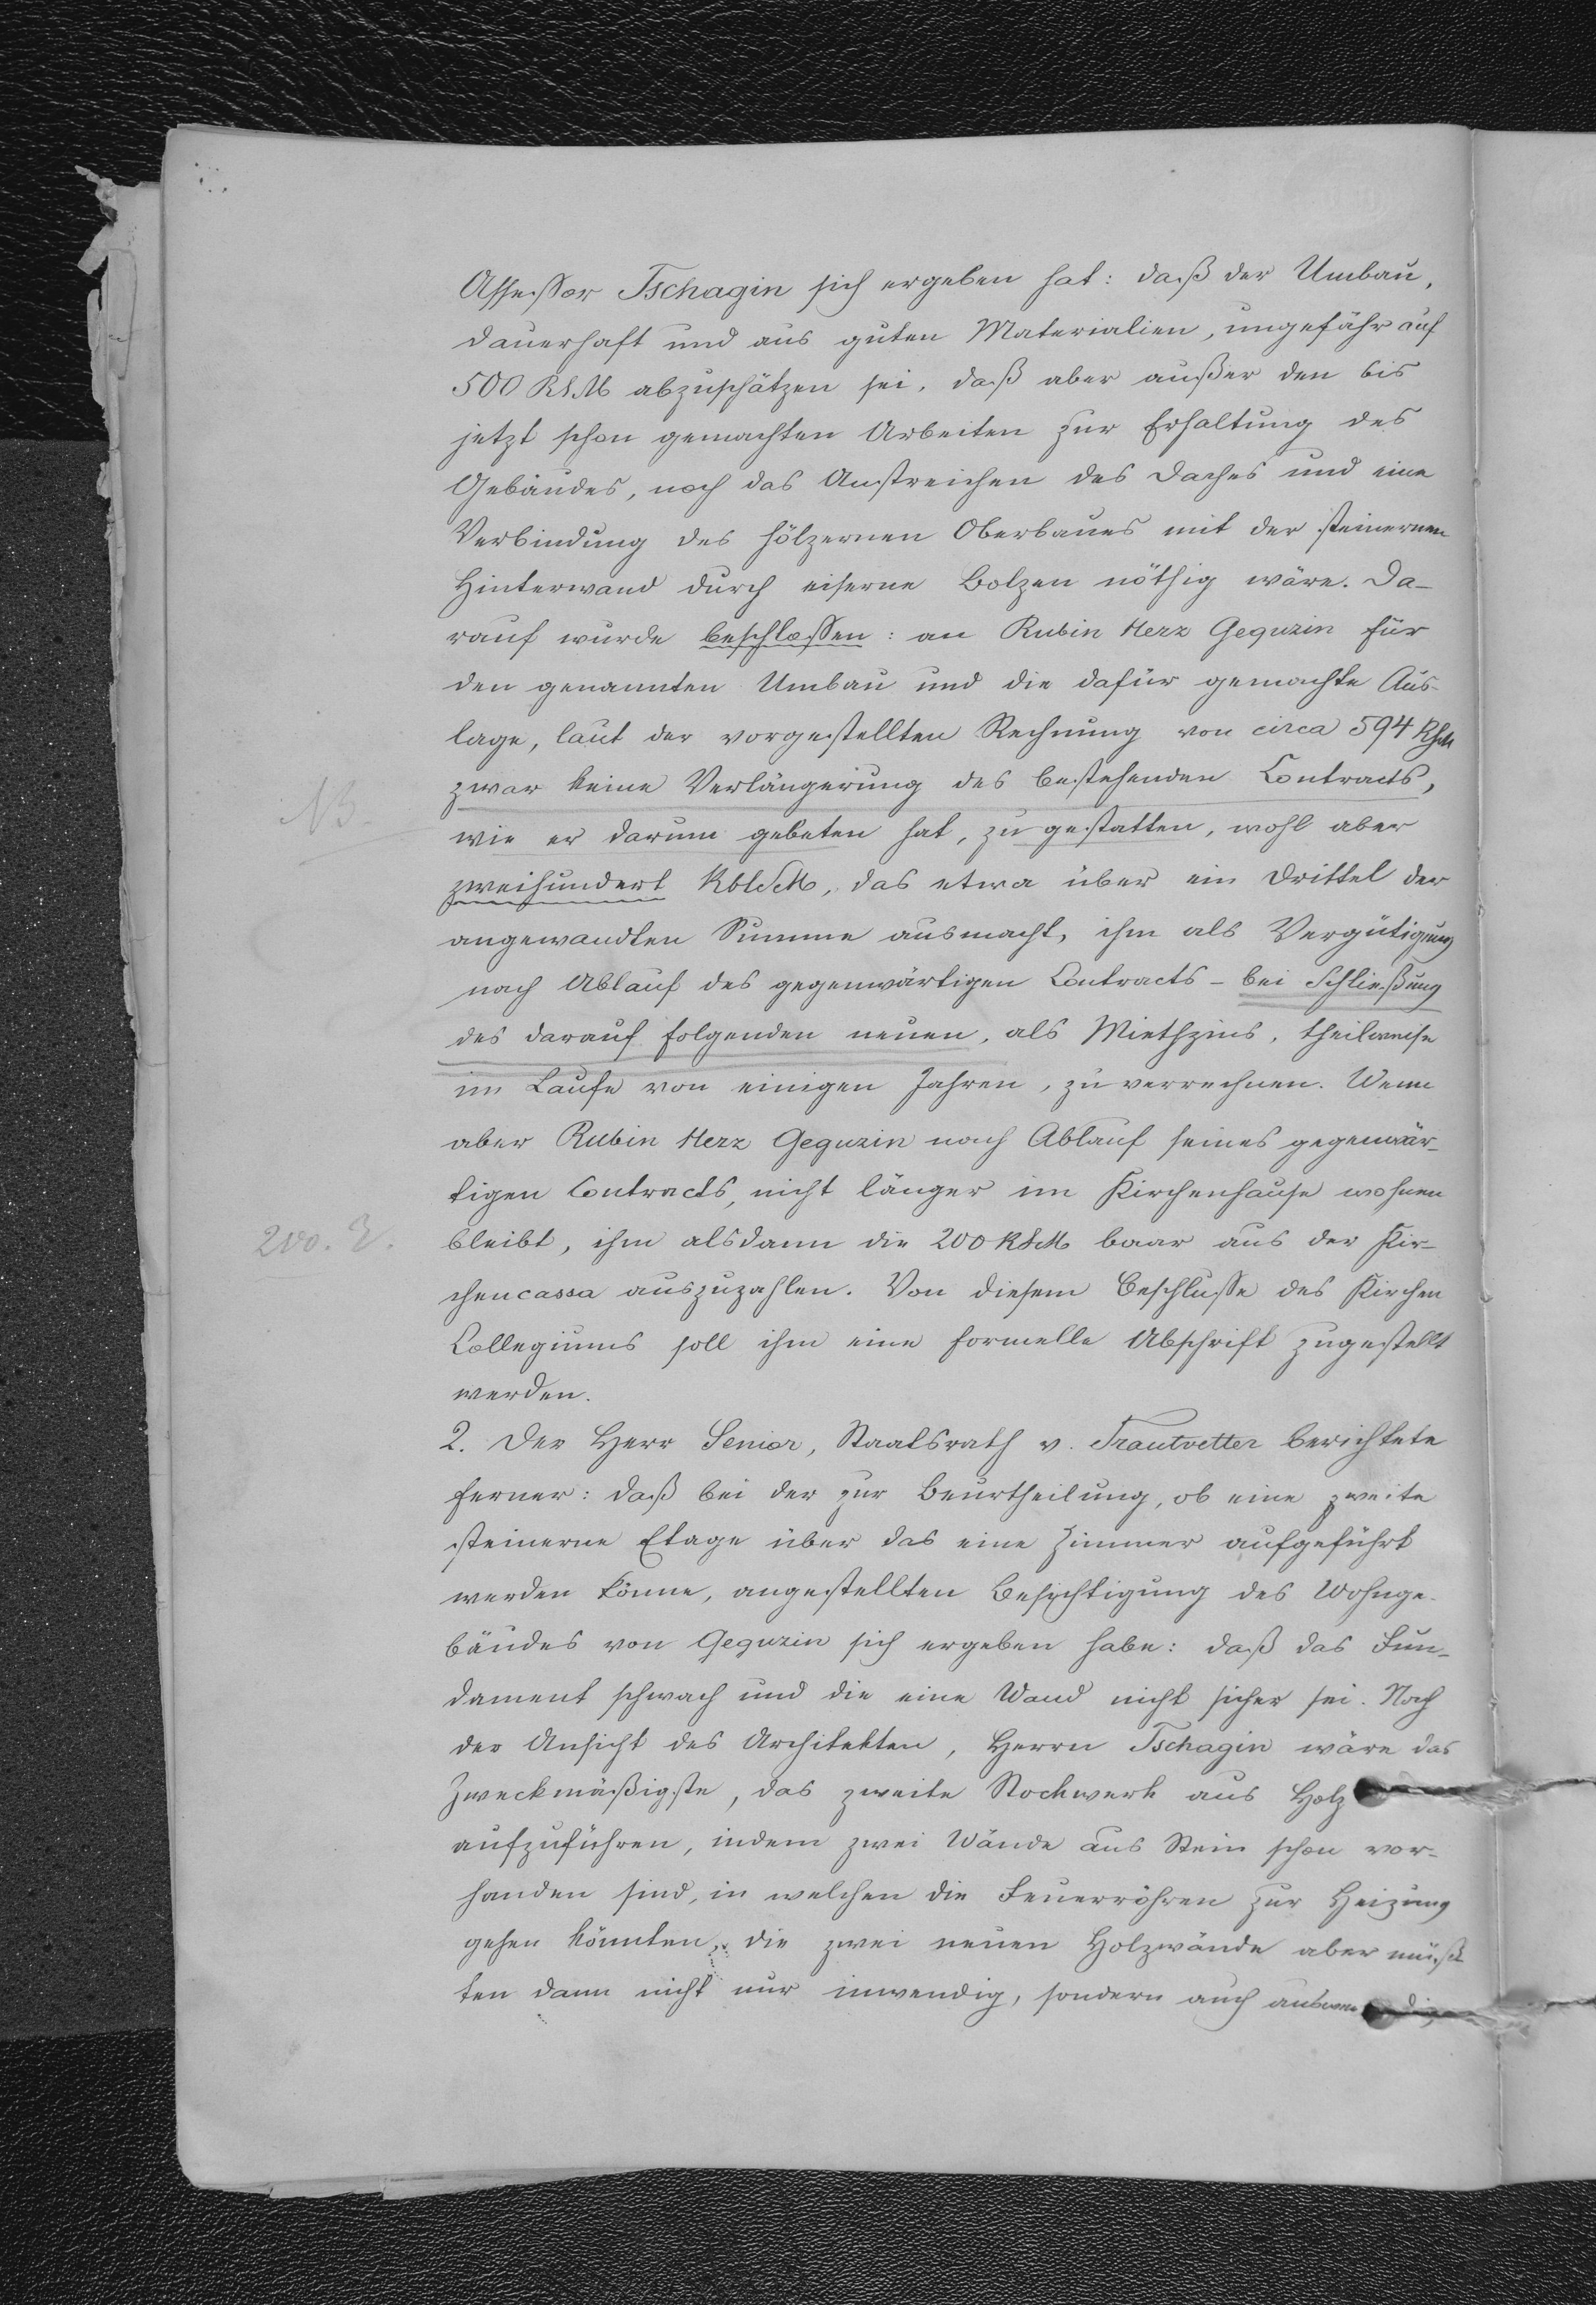 Assessor Tschagin sich ergeben hat: daß der Umbau,
dauerhaft und aus guten Materialien, ungefähr auf
500 RSM abzuschätzen sei, daß aber außer den bis
jetzt schon gemachten Arbeiten zur Erhaltung des
Gebäudes, noch das Anstreichen des Daches und eine
Verbindung des hölzernen Oberbaues mit der steinernen
Hinterwand durch eiserne Bolzen nöthig wäre. Da-
rauf wurde beschlossen: an Rubin Herz Geguzin für
den genannten Umbau und die dafür gemachte Aus-
lage, laut der vorgestellten Rechnung von circa 594 RSM
NB. zwar keine Verlängerung des bestehenden Contracts,
wie er darum gebeten hat, zu gestatten, wohl aber
zweihundert RblSM, das etwa über ein Drittel der
angewandten Summe ausmacht, ihm als Vergütigung
nach Ablauf des gegenwärtigen Contracts - bei Schließung
des darauf folgenden neuen, als Miethzins, theilweise
im Laufe von einigen Jahren, zu verrechnen. Wenn
aber Rubin Herz Geguzin nach Ablauf seines gegenwär-
tigen Contracts, nicht länger im Kirchenhause wohnen
200. R. bleibt, ihm alsdann die 200 RSM baar aus der Kir-
chencassa auszuzahlen. Von diesem Beschlusse des Kirchen
Collegiums soll ihm eine formelle Abschrift zugestellt
werden.
2. Der Herr Senior, Staatsrath v. Trautvetter berichtete
ferner: daß bei der zur Beurtheilung, ob eine zweite
steinerne Etage über das eine Zimmer aufgeführt
werden könne, angestellten Besichtigung des Wohnge-
bäudes von Geguzin sich ergeben habe: daß das Fun-
dament schwach und die eine Wand nicht sicher sei. Nach
der Ansicht des Architekten, Herrn Tschagin wäre das
Zweckmäßigste, das zweite Stockwerk aus Holz
aufzuführen, indem zwei Wände aus Stein schon vor-
handen sind, in welchen die Feuerröhren zur Heizung
gehen könnten, die zwei neuen Holzwände aber müß-
ten dann nicht nur inwendig, sondern auch auswendig